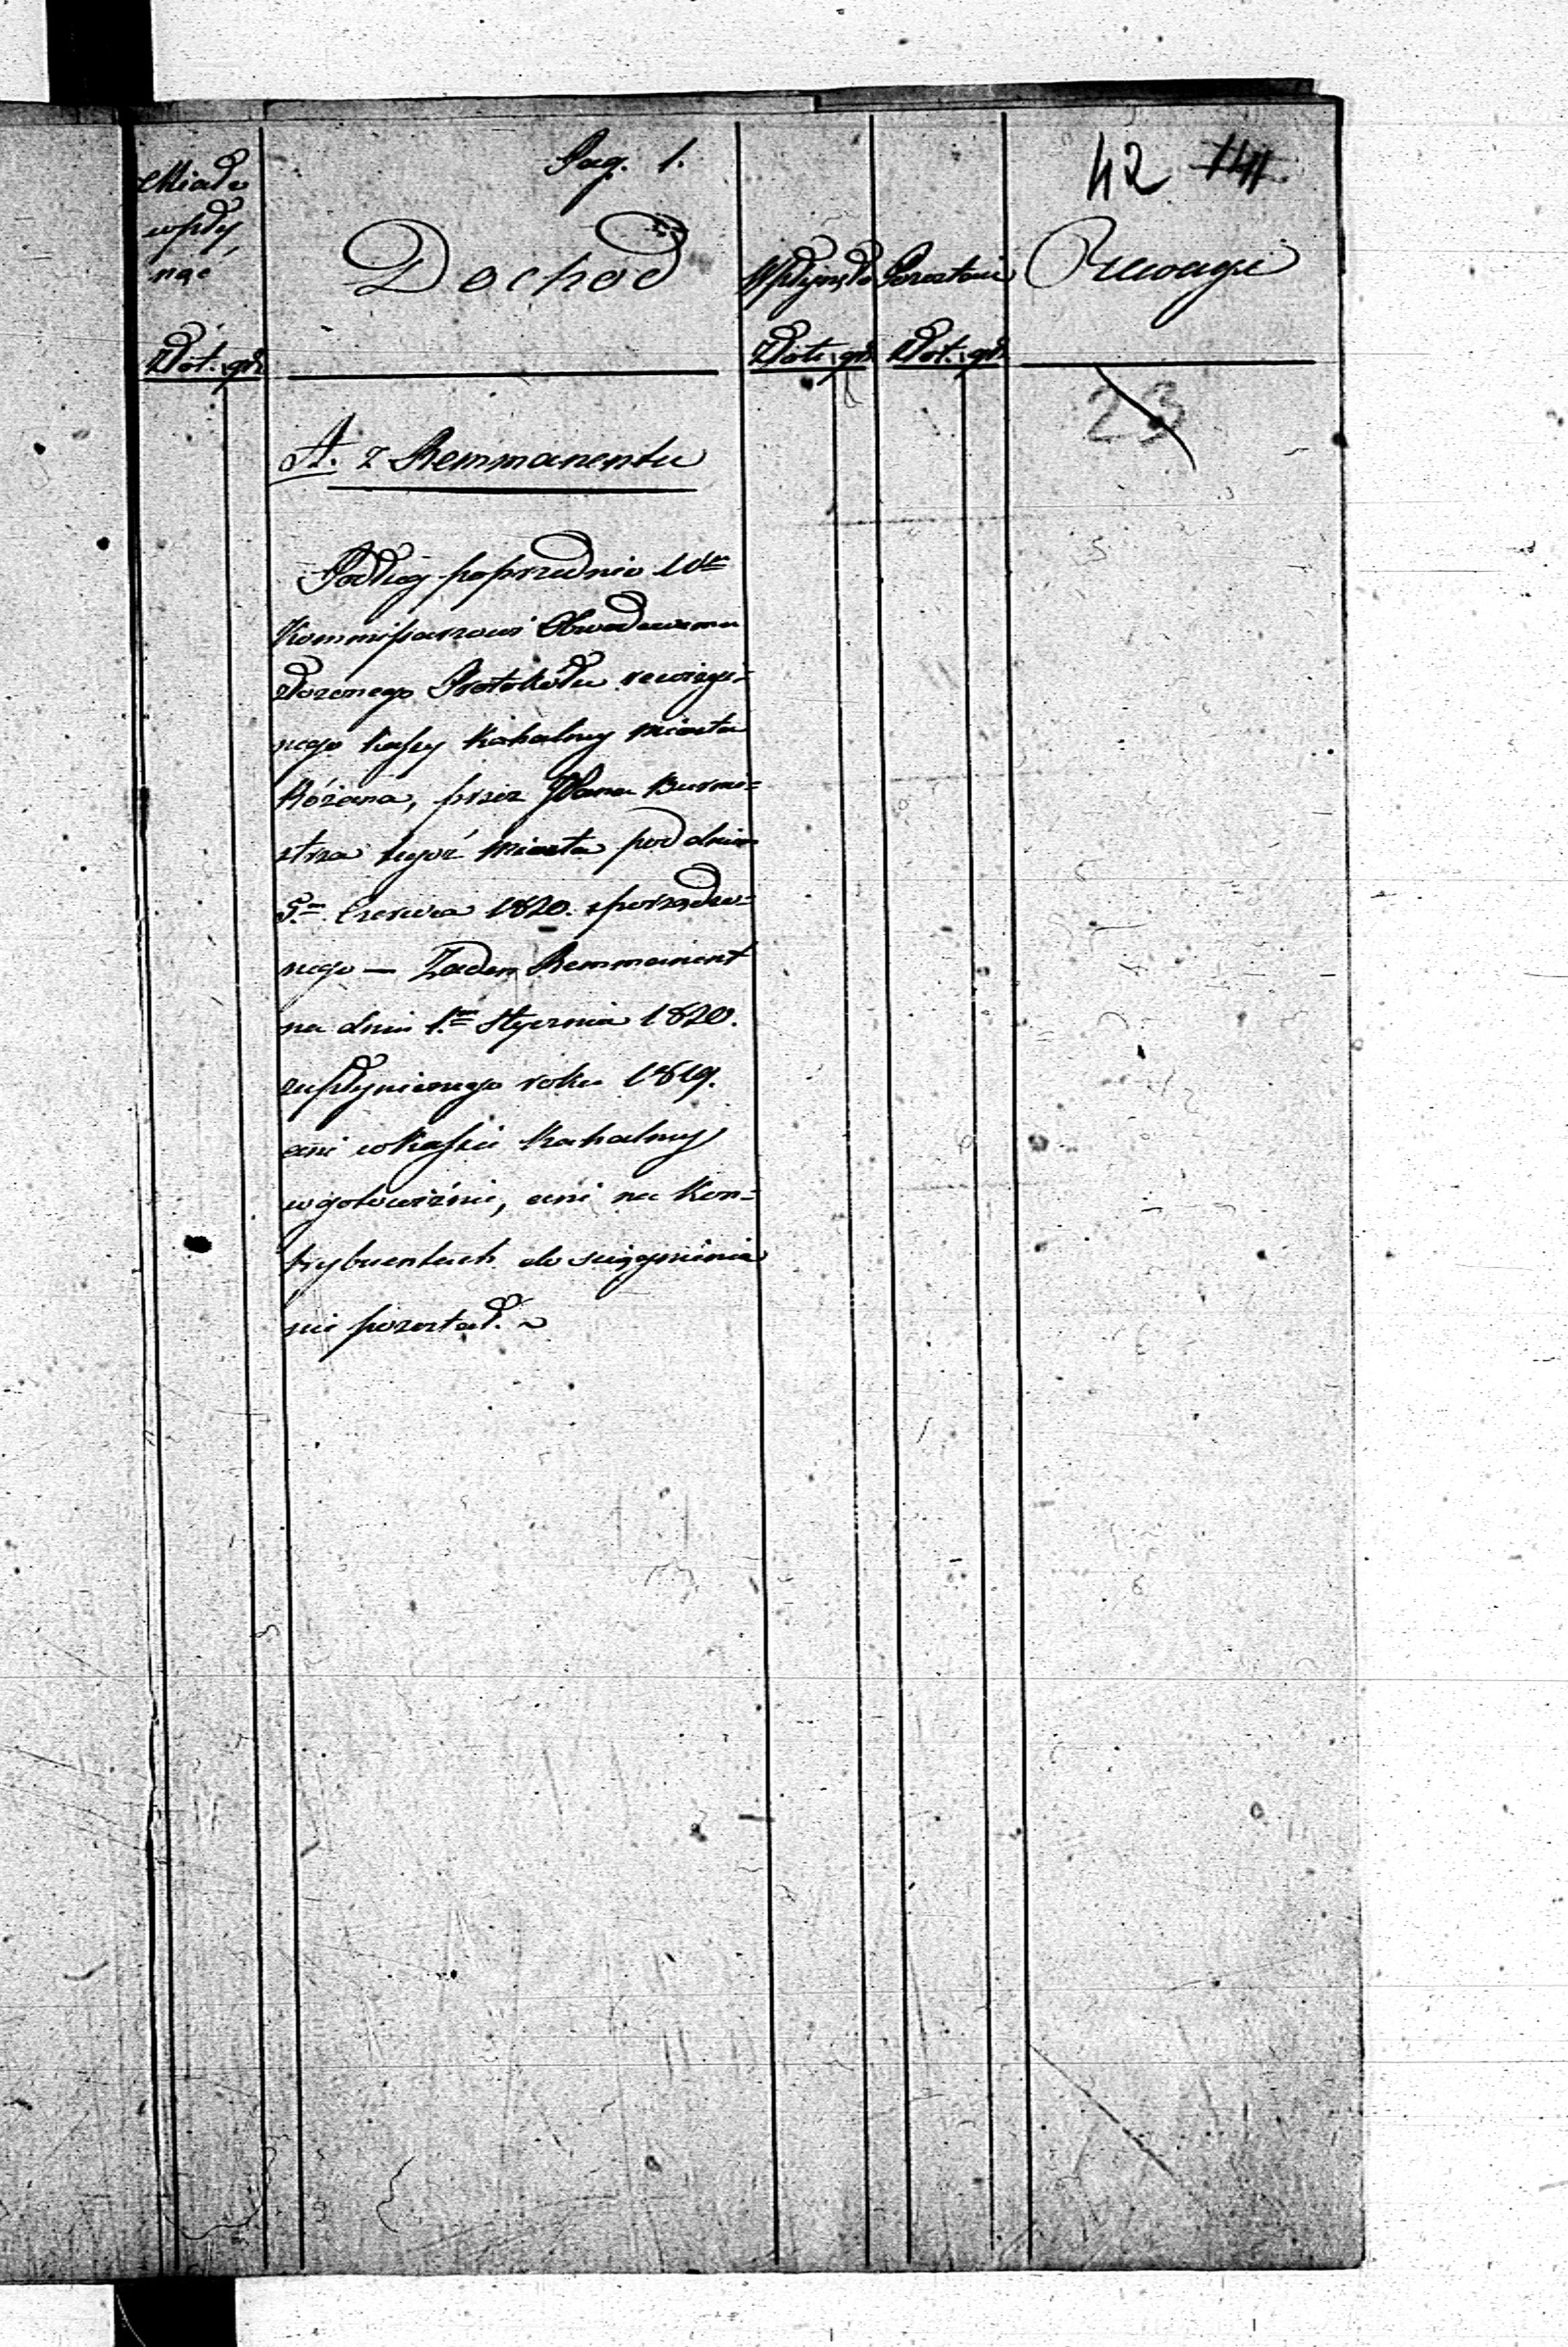 Pag. 1.
42 141
Miało
wpły
nąć
Dochod
Wpłynęło
Pozostaie
Uwagi
Złot. gr.
Złot. gr.
Złot. gr.
23
A. z Remmanentu
Podług poprzednio
Kommissarzowi Obwodowemu
złożonego Protokołu rewizyi=
nego kassy Kahalney Miasta
Różana, przez Pana Burmi=
strza tegoż Miasta pod dniem
5m Czerwca 1820. sporządzo=
nego — Żaden Remmanent
na dniu 1.m Stycznia 1820.
zupłynionego roku 1819.
ani w kassie Kahalney
w gotowiźnie, ani na Kon=
trybuentach do sciągnienia
nie pozostał.